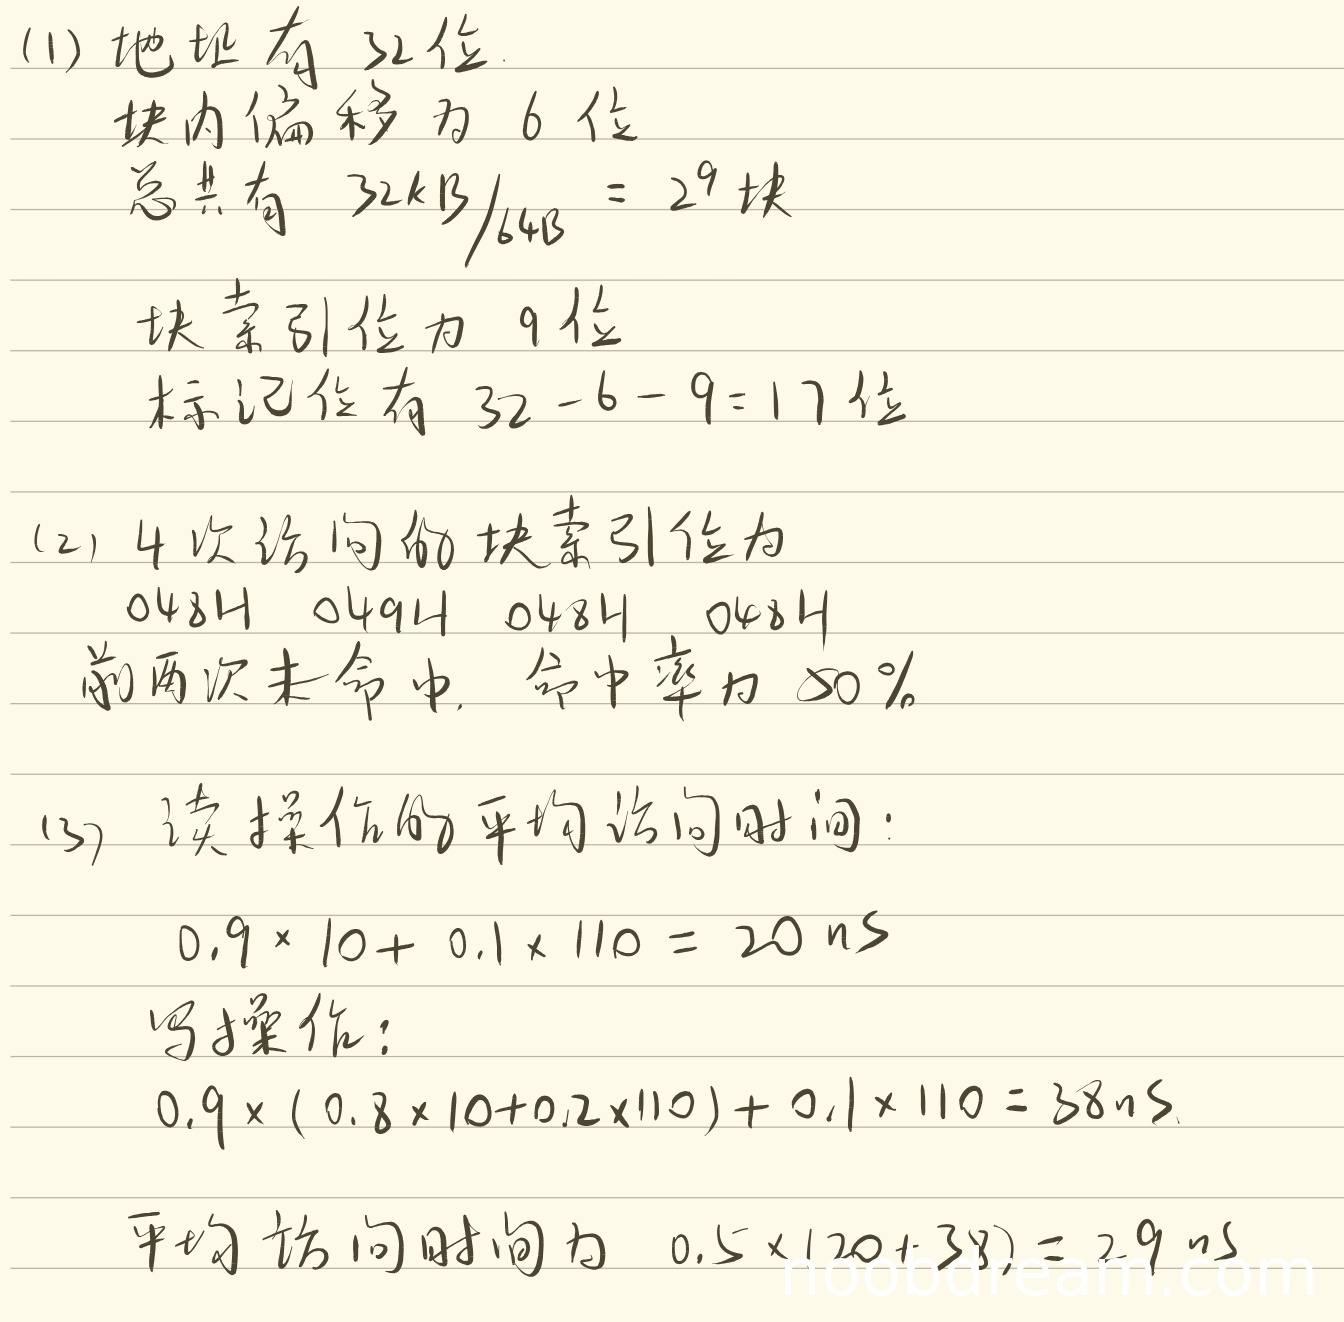 (1) 地址有 32位.
块内偏移为 6 位
总共有 32kB/64B = 2⁹块
块索引位为 9位
标记位有 32-6-9=17位
(2) 4次访问的块索引位为
048H 049H 048H 048H
前两次未命中. 命中率为 50%
(3) 读操作的平均访问时间:
0.9×10+0.1×110=20ns
写操作:
0.9×(0.8×10+0.2×110)+0.1×110=38ns.
平均访问时间为 0.5×(20+38)=29ns
noobdream.com